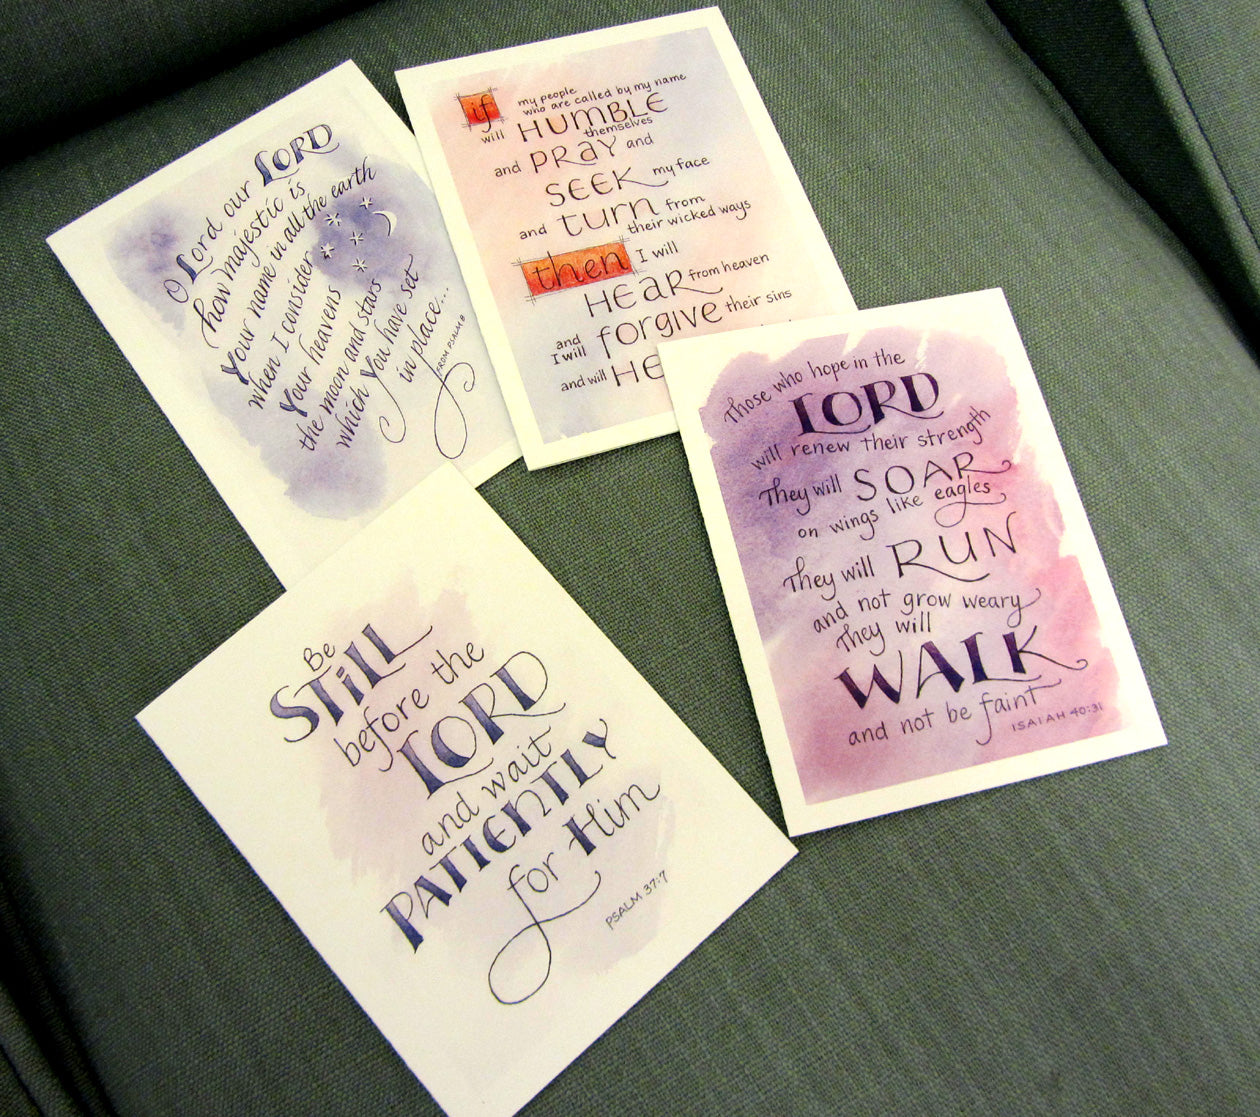 O Lord our LORD
how majestic is
Your name in all the earth
when I consider
Your heavens
the moon and stars
which You have set
in place...
FROM PSALM 8
if my people
who are called by my name
will HUMBLE
themselves
and PRAY and
SEEK my face
and turn from
their wicked ways
then I will
HEAR from heaven
and
I will forgive their sins
and will HE
Those who hope in the
LORD
will renew their strength
They will SOAR
on wings like eagles
They will RUN
and not grow weary
They will
WALK
and not be faint
ISAIAH 40:31
Be
STiLL
before the
LORD
and wait
PATIENTLY
for Him
PSALM 37:7